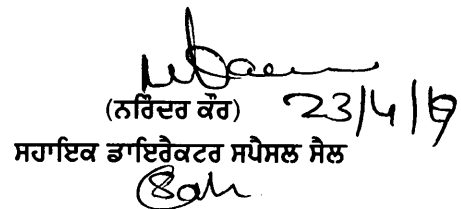 (ਨਰਿੰਦਰ ਕੌਰ) 23/4/19
ਸਹਾਇਕ ਡਾਇਰੈਕਟਰ ਸਪੈਸਲ ਸੈਲ